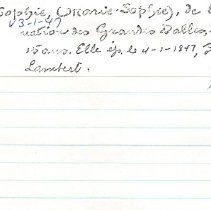 Sophie, (Marie-Sophie), de l
3-1-47
nation des Grandes Dalles,
Elle ép. le 4-1-1847,
Lambert.